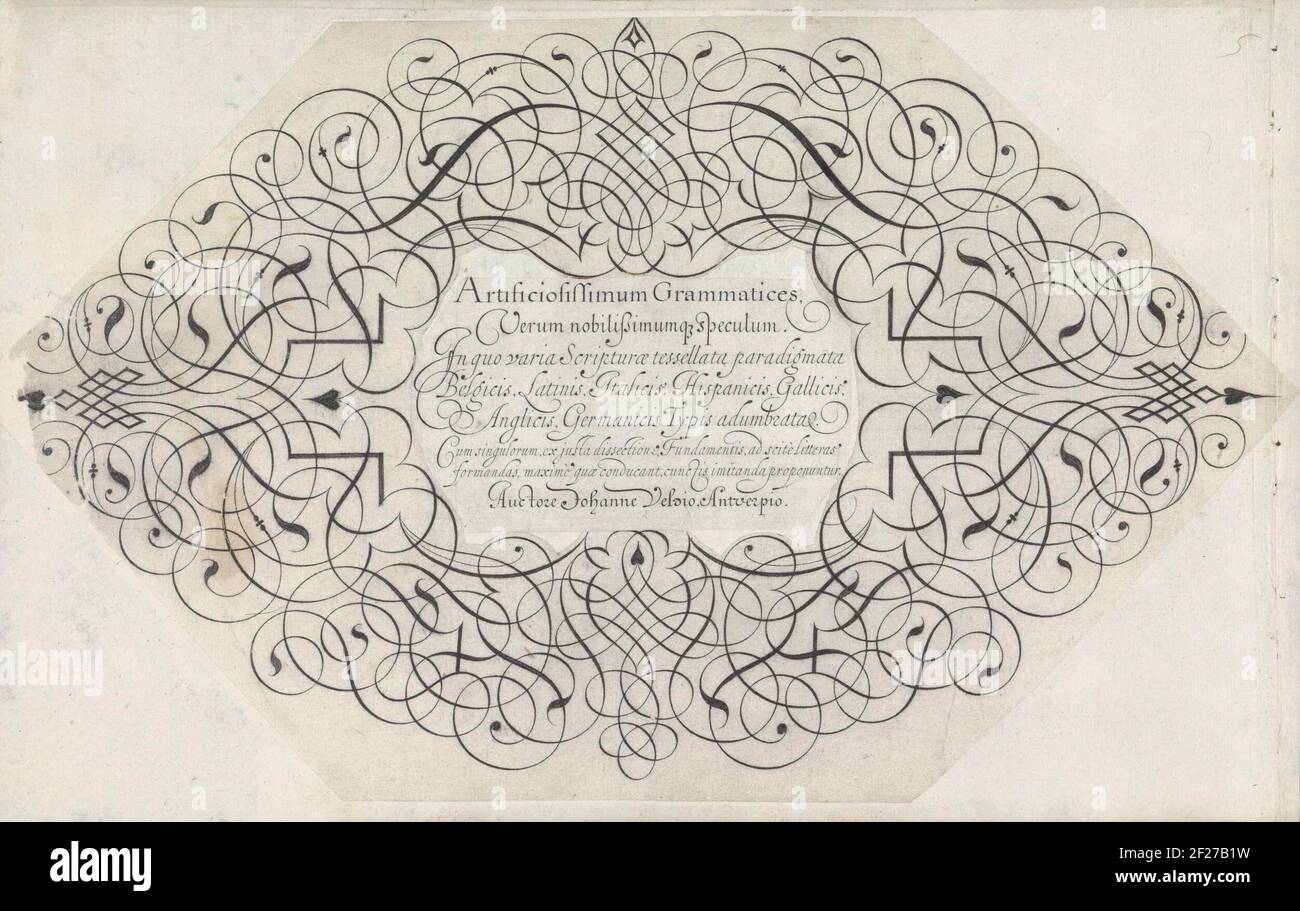 5
Artificiosissimum Grammatices,
Verum nobilissimumq, speculum.
In quo varia Scripturæ tessellata paradigmata
Belgicis, Latinis, Italicis, Hispanicis, Gallicis,
Anglicis, Germanicis Typis adumbrata
Cum singulorum, ex justa dissectione, Fundamentis, ad scitè litteras
formandas, maximè quæ conducant, cunctis imitanda proponuntur.
Auctore Johanne Velvio. Antverpio.
a
alamy
alamy
Image ID: 2F27B1W
www.alamy.com